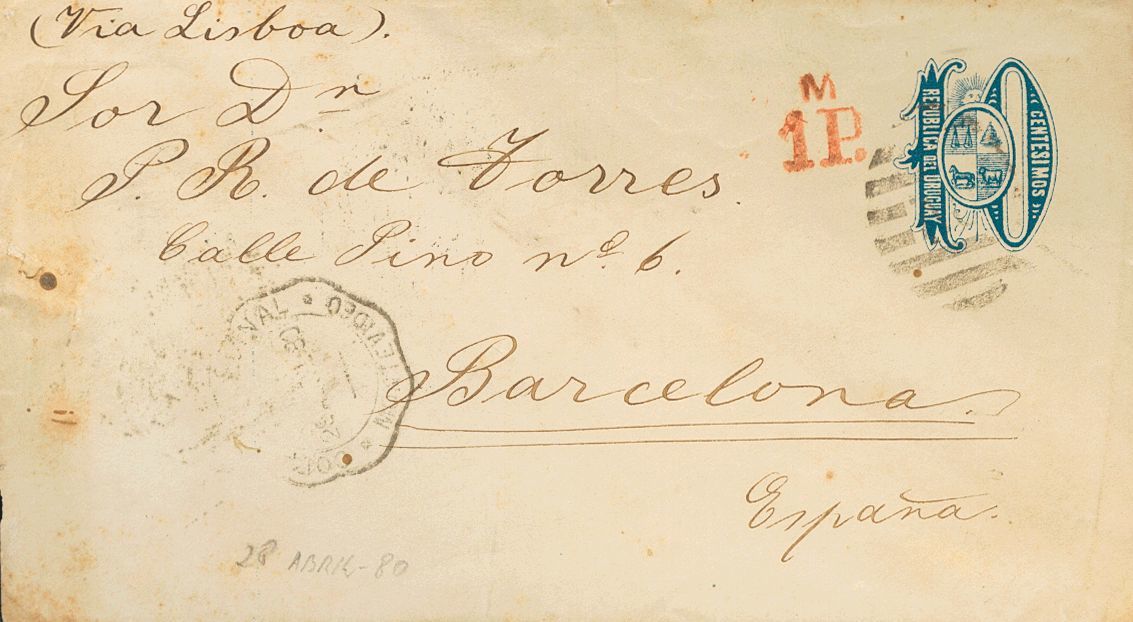 (Via Lisboa).
Sor Dn
P. R. de Torres.
Calle Pino nº 6.
Barcelona.
España.
M
1P.
10
REPUBLICA DEL URUGUAY
CENTESIMOS
MONTEVIDEO
28 ABRIL-80